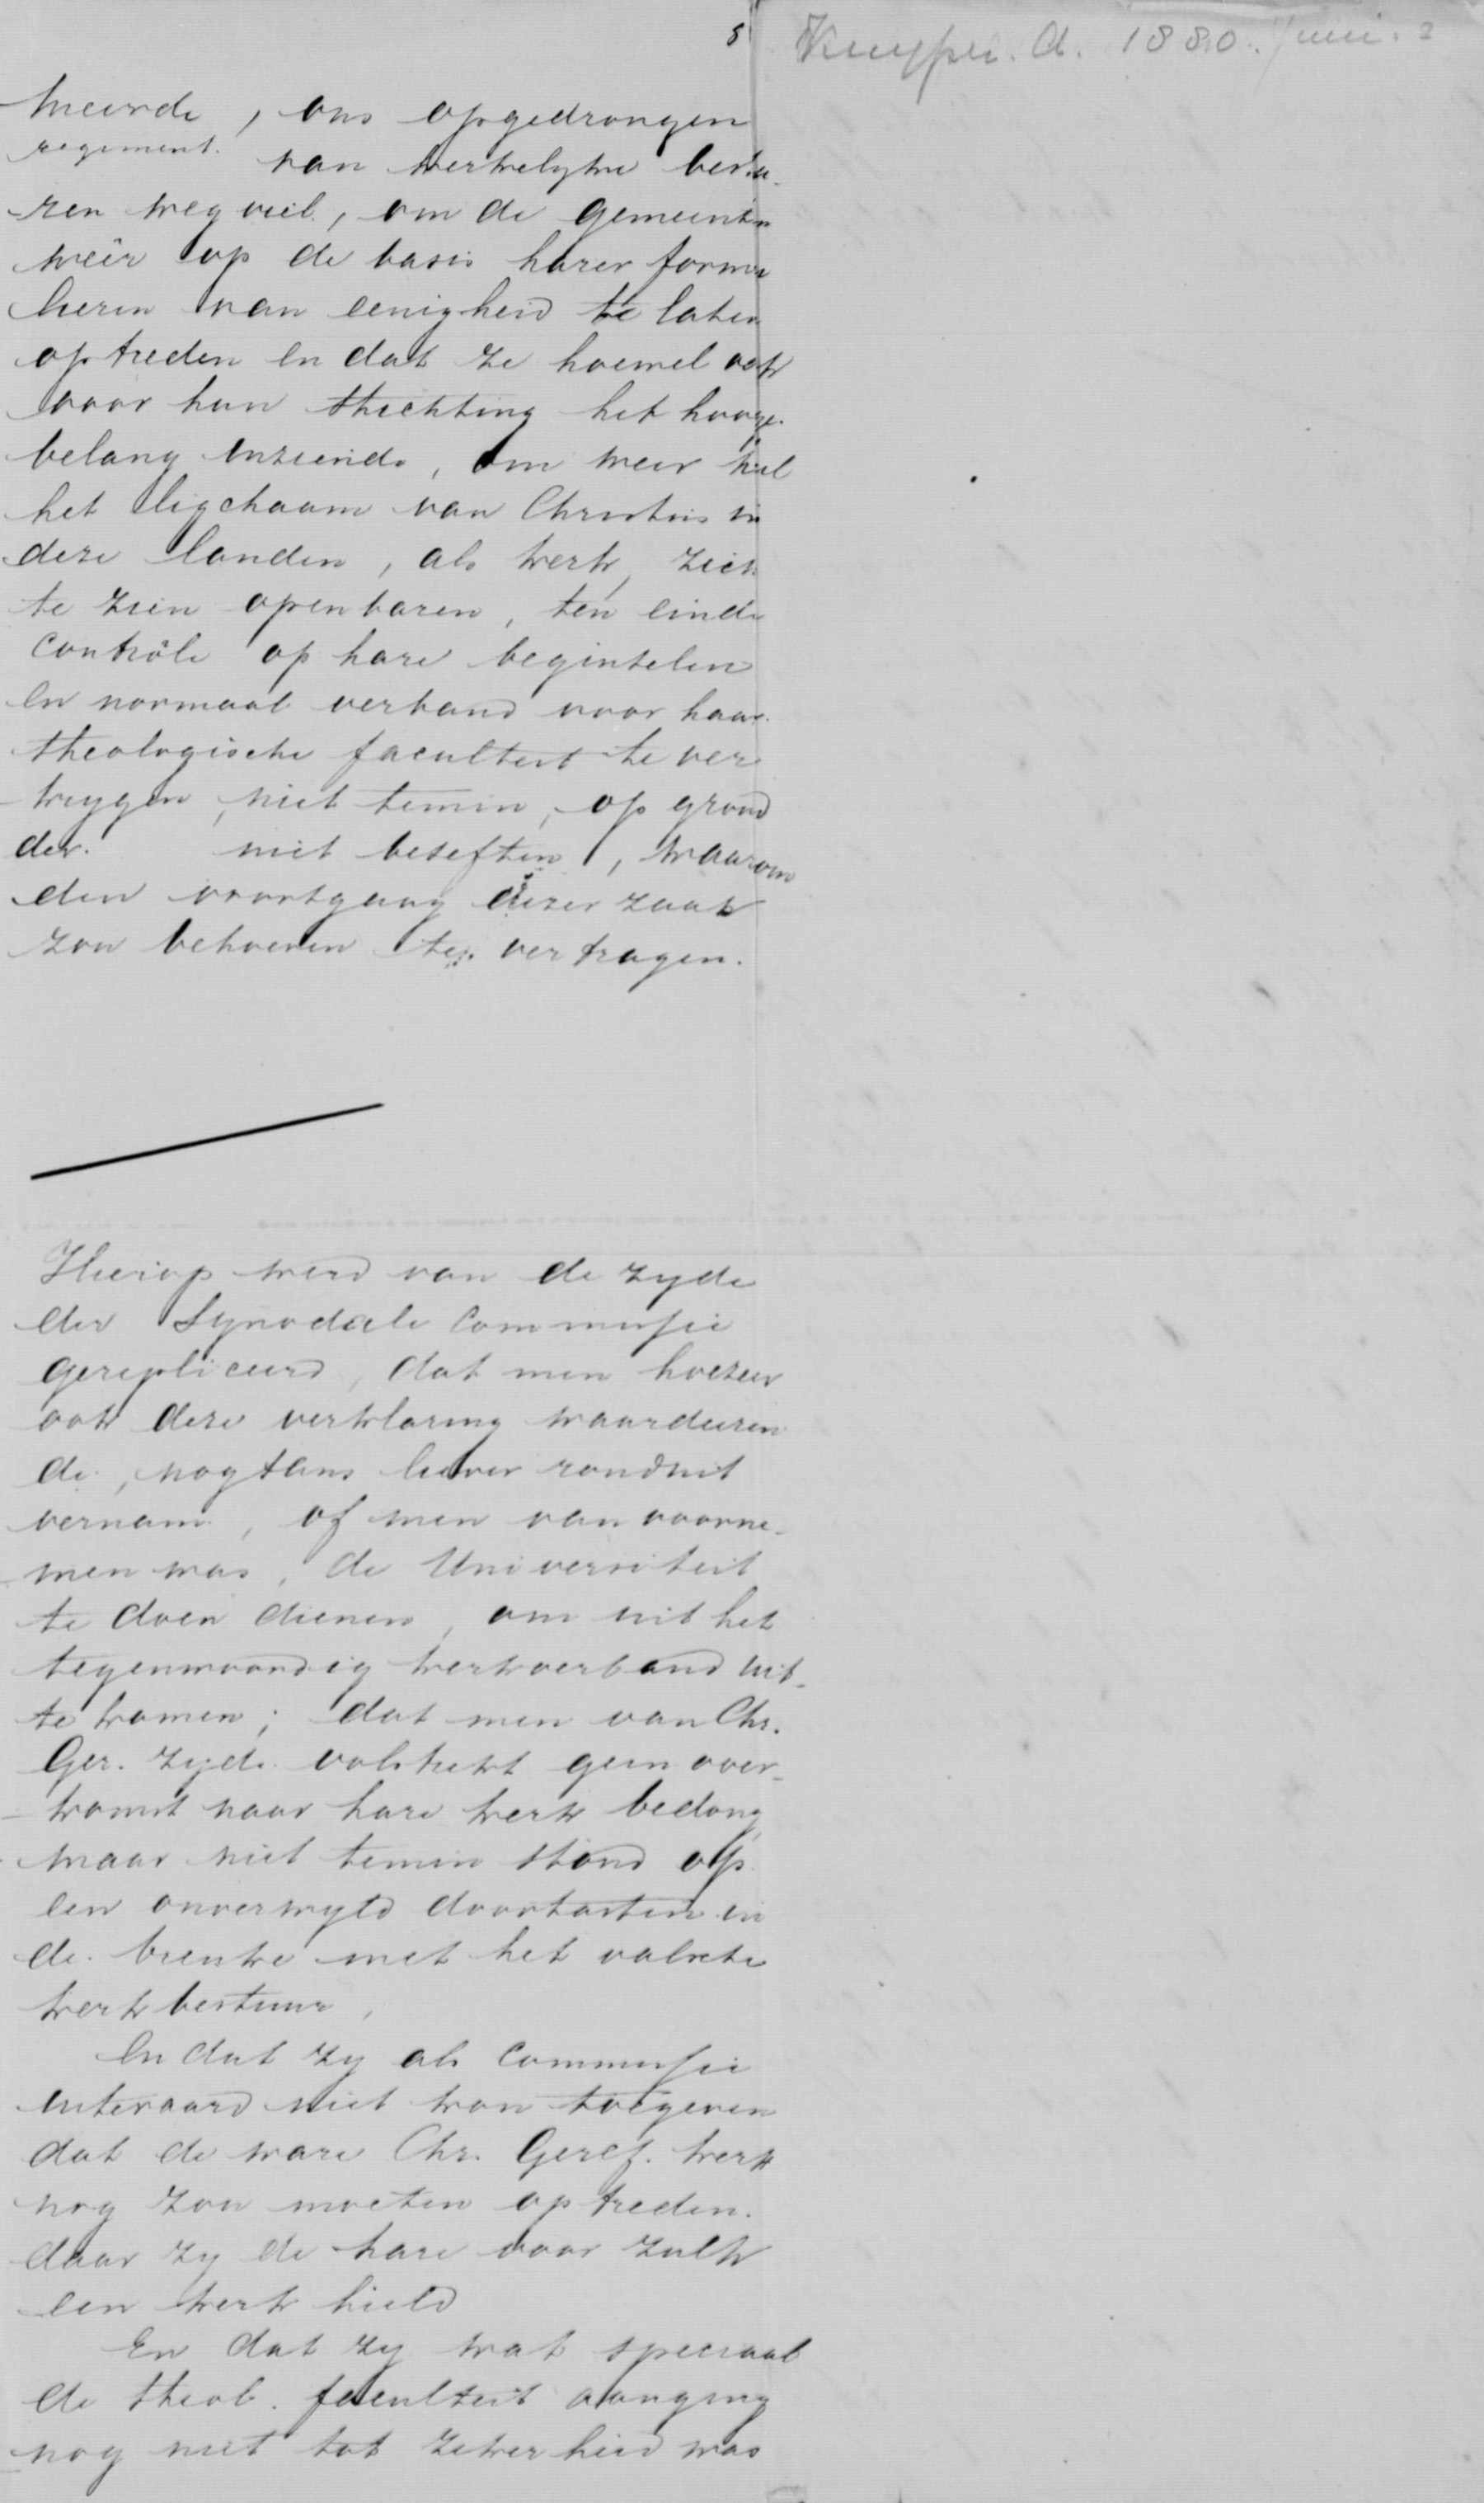 8
Kuyper. A. 1880. juni. 2
meende, ons opgedrongen
regiment van kerkelyke bestu-
ren weg viel, om de gemeenten
weêr op de basis harer formu
lieren van eenigheid te laten
optreden en dat ze hoewel ook
voor hun stichting het hooge
belang inziende, om weer heel
het ligchaam van Christus in
deze landen, als kerk, zich
te zien openbaren, ten einde
contrôle op hare beginselen
en normaal verband voor haar
theologische faculteit te ver
krygen, niet temin, op grond
der niet beseften, waarom
den voortgang dezer zaak
zou behoeven te vertragen.
Hierop werd van de zyde
der Synodale Commissie
gerepliceerd, dat men hoezeer
ook deze verklaring waardeeren
de, nogtans liever ronduit
vernam, of men van voorne-
men was, de Universiteit
te doen dienen, om uit het
tegenwoordig kerkverband uit
te komen; dat men van Chr.
Ger. zyde volstrekt geen over-
komst naar hare kerk bedong
maar niet temin stond op
een onverwyld doortasten in
de breuke met het valsche
kerkbestuur,
En dat zy als Commissie
uiteraard niet kon toegeven
dat de ware Chr. Geref. kerk
nog zou moeten optreden.
daar zy de hare voor zulk
een kerk hield
En dat zy wat speciaal
de theol. faculteit aanging
nog niet tot zekerheid was